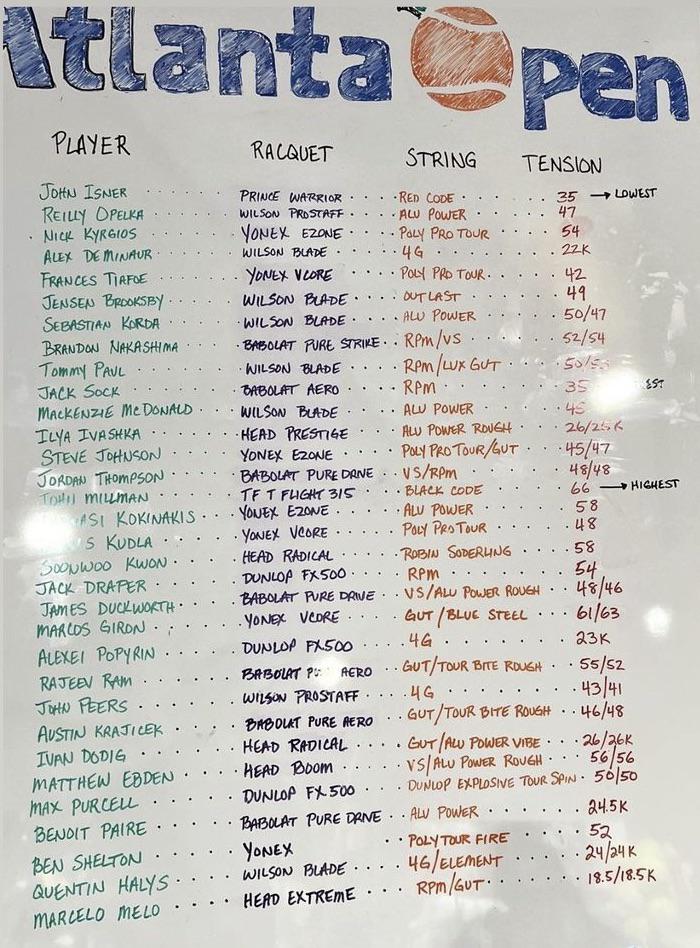 Atlanta Open
PLAYER RACQUET STRING TENSION
JOHN ISNER PRINCE WARRIOR RED CODE 35 → LOWEST
REILLY OPELKA WILSON PROSTAFF ALU POWER 47
NICK KYRGIOS YONEX EZONE POLY PRO TOUR 54
ALEX DE MINAUR WILSON BLADE 4G 22K
FRANCES TIAFOE YONEX VCORE POLY PRO TOUR 42
JENSEN BROOKSBY WILSON BLADE OUTLAST 49
SEBASTIAN KORDA WILSON BLADE ALU POWER 50/47
BRANDON NAKASHIMA BABOLAT PURE STRIKE RPM/VS 52/54
TOMMY PAUL WILSON BLADE RPM/LUX GUT
JACK SOCK BABOLAT AERO RPM 35
MACKENZIE MCDONALD WILSON BLADE ALU POWER 45
ILYA IVASHKA HEAD PRESTIGE ALU POWER ROUGH 26/25K
STEVE JOHNSON YONEX EZONE POLY PRO TOUR/GUT 45/47
JORDAN THOMPSON BABOLAT PURE DRIVE VS/RPM 48/48
JOHN MILLMAN TF T FLIGHT 315 BLACK CODE 66 → HIGHEST
KOKINAKIS YONEX EZONE ALU POWER 58
KUDLA YONEX VCORE POLY PRO TOUR 48
SOONWOO KWON HEAD RADICAL ROBIN SODERLING 58
JACK DRAPER DUNLOP FX500 RPM 54
JAMES DUCKWORTH BABOLAT PURE DRIVE VS/ALU POWER ROUGH 48/46
MARCOS GIRON YONEX VCORE GUT/BLUE STEEL 61/63
ALEXEI POPYRIN DUNLOP FX500 4G 23K
RAJEEV RAM BABOLAT AERO GUT/TOUR BITE ROUGH 55/52
JOHN PEERS WILSON PROSTAFF 4G 43/41
AUSTIN KRAJICEK BABOLAT PURE AERO GUT/TOUR BITE ROUGH 46/48
IVAN DODIG HEAD RADICAL GUT/ALU POWER VIBE 26/26K
MATTHEW EBDEN HEAD BOOM VS/ALU POWER ROUGH 56/56
MAX PURCELL DUNLOP FX500 DUNLOP EXPLOSIVE TOUR SPIN 50/50
BENOIT PAIRE BABOLAT PURE DRIVE ALU POWER 24.5K
BEN SHELTON YONEX POLYTOUR FIRE 52
QUENTIN HALYS WILSON BLADE 4G/ELEMENT 24/24K
MARCELO MELO HEAD EXTREME RPM/GUT 18.5/18.5K